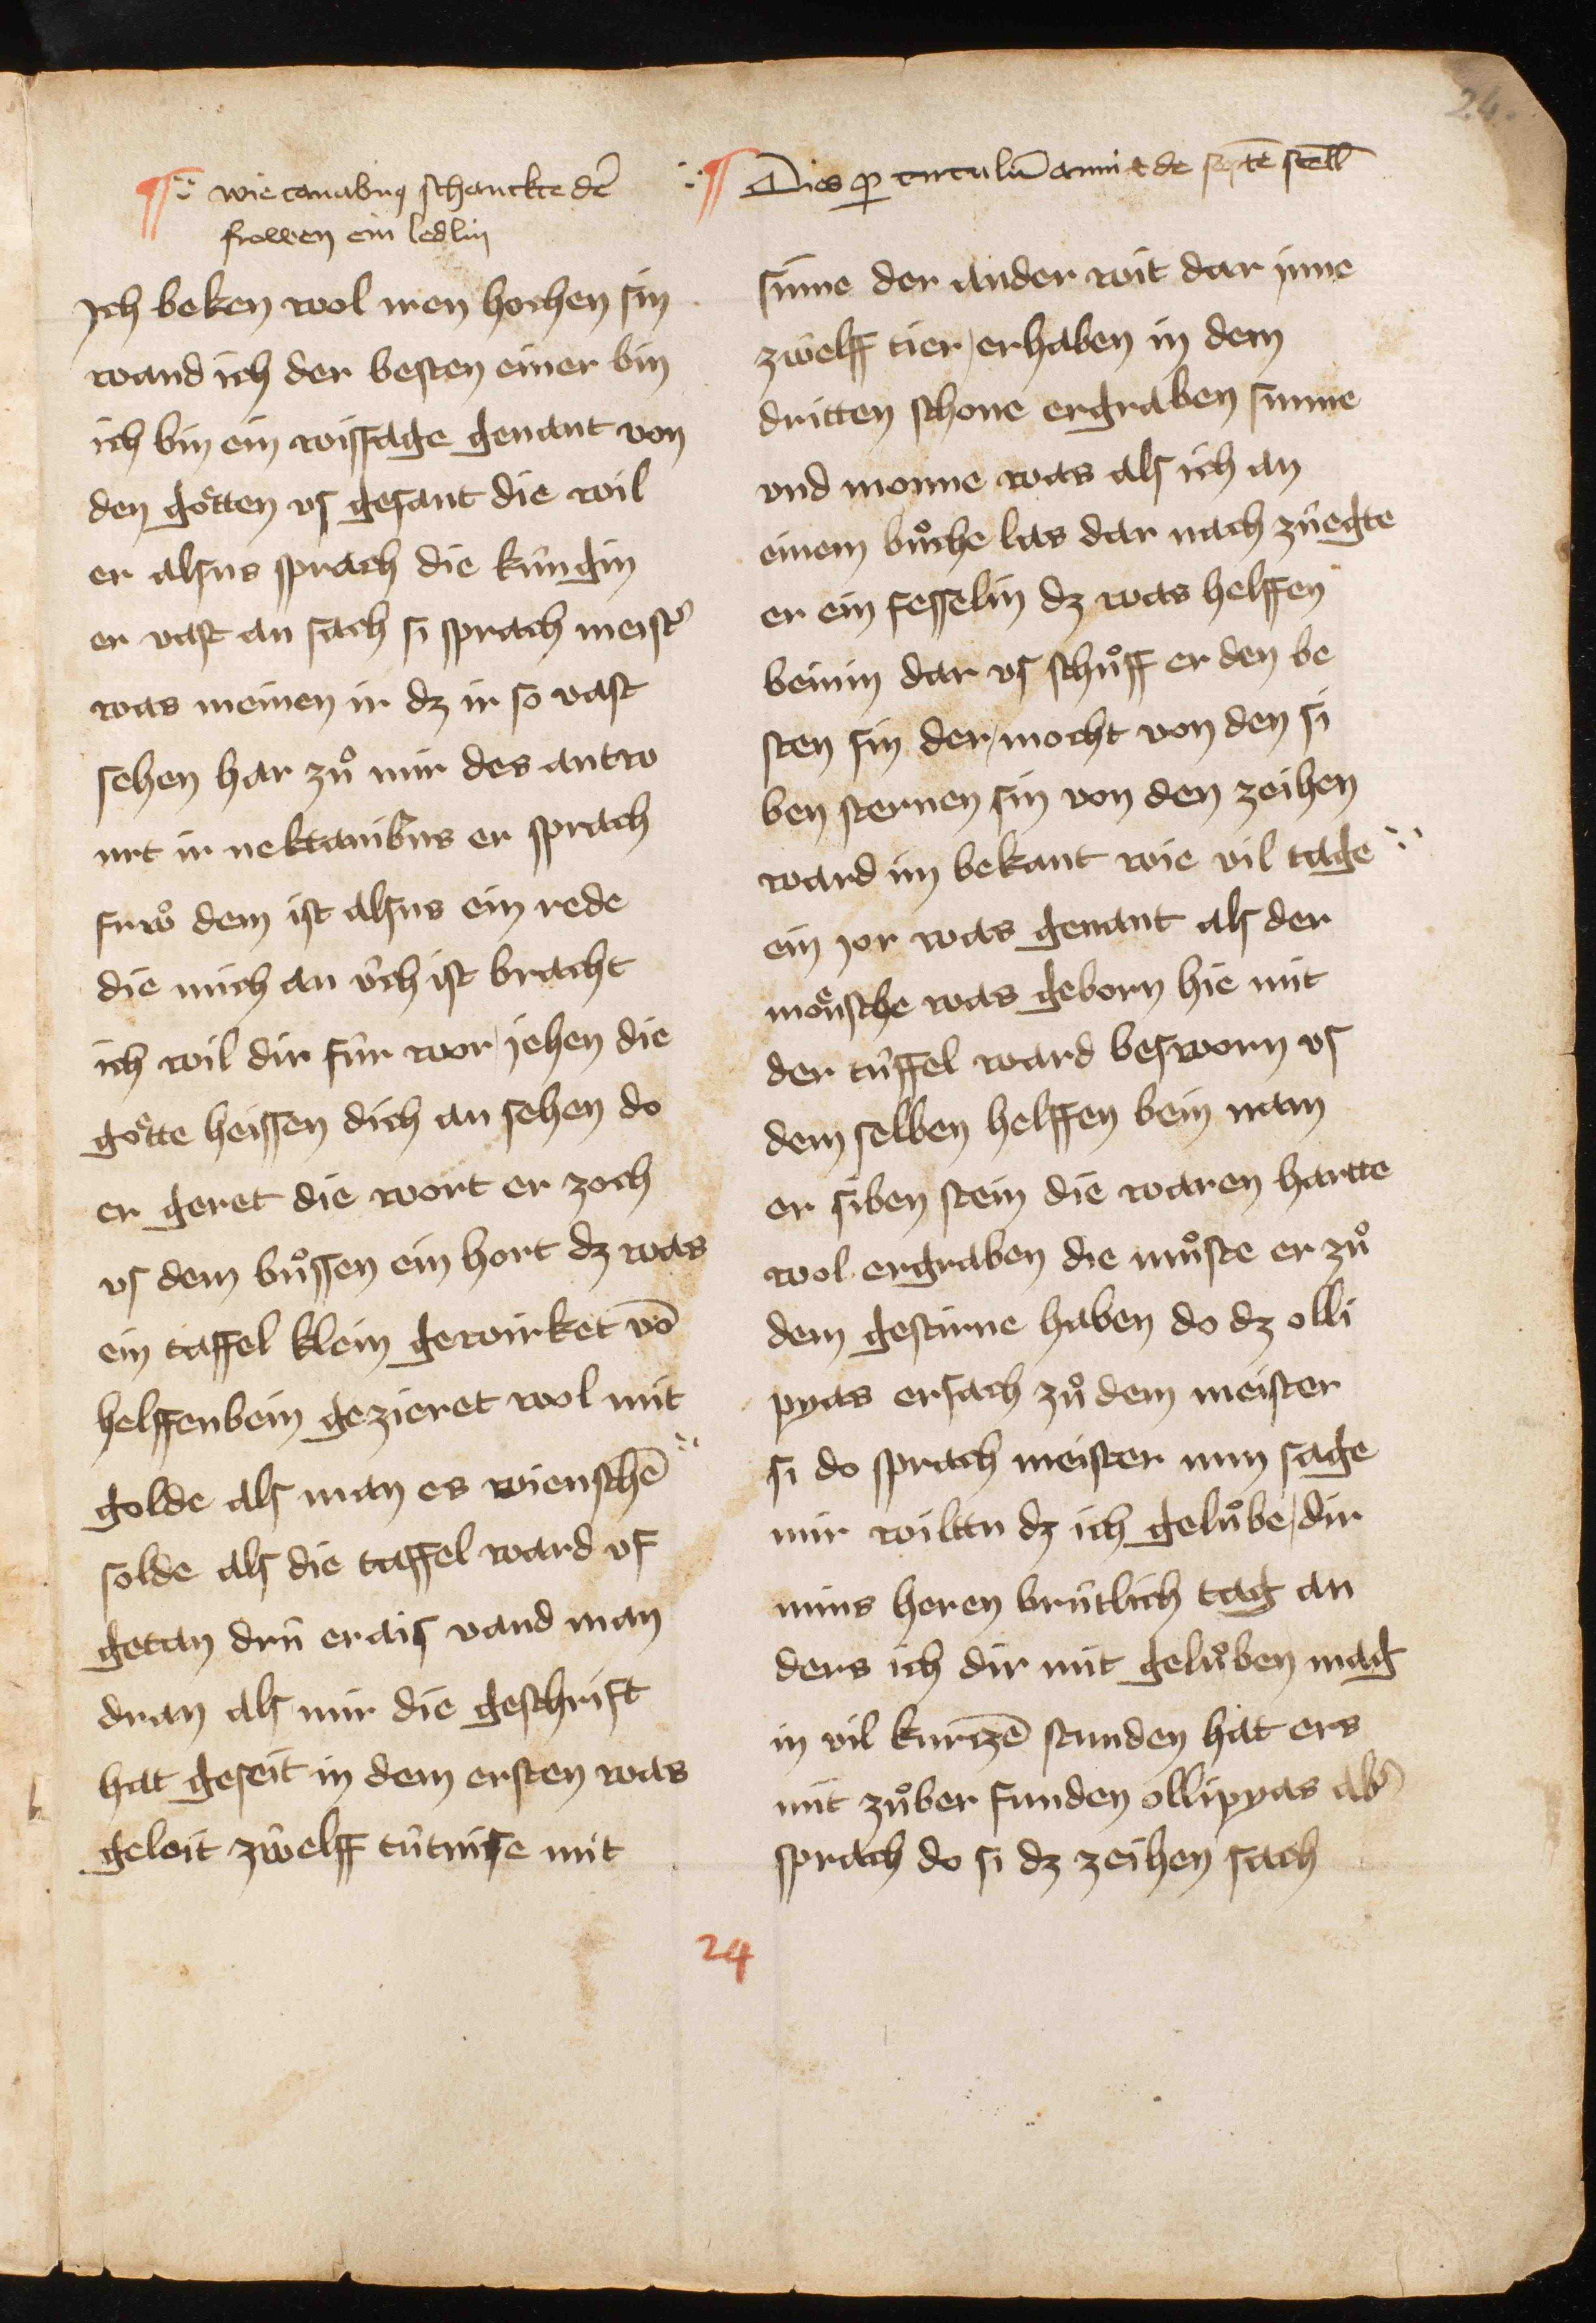 24.
wie tanabus schanckte der̄
frowen ein ledlin
Ich beken wol iren hochen sin
wand ich der besten einer bin
ich bin ein wissage genant von
den goͤtten vs gesant die wil
er alsus sprach die kúngin
er vast an sach si sprach meistˀ
was meinen ir dz ir so vast
sehen har zuͦ mir des antw
urt ir nektanibus er sprach
fruwͦ dem ist alsus ein rede
die mich an v́ch ist bracht
ich wil dir fúr wor jehen die
goͤtte heissen dich an sehen do
er geret die wort er zoch
vs dem buͦssen ein hort dz was
ein taffel klein gewirket vō
helffenbein gezieret wol mit
golde als man es wienschē
solde als die taffel ward vf
getan drú erais vand man
dran als mir die geschrift
hat geseit in dem ersten was
geleit zwelff tútnise mit
Dies ꝑ circulū anni ⁊ de septē stell
sinne der ander wit dar inne
zwelff tier erhaben in dem
dritten schone ergraben sunne
vnd monne was als ich an
einem buͦche las dar nach zúegte
er ein fesselin dz was helffen
beinin dar vs schuͦff er den be
sten sin der mocht von den si
ben sternen sin von den zeihen
ward im bekant wie vil tage
ein jor was genant als der
moͤnsche was geborn hie mit
der túffel ward besworn vs
dem selben helffen bein nam
er siben stein die waren hartte
wol ergraben die muͦste er zuͦ
dem gestirne haben do dz olli
pyas ersach zuͦ dem meister
si do sprach meister nun sage
mir wilttu dz ich geluͦbe dir
mins heren brútlich tag an
ders ich dir nit geluͦben mag
in vil kurczē stunden hat ers
mit zuͦber funden ollipyas abˀ
sprach do si dz zeihen sach
24